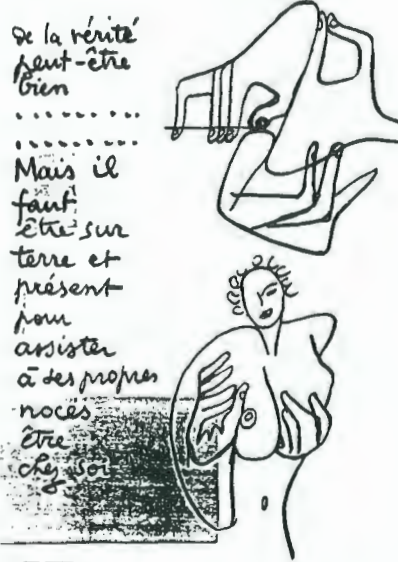 de la vérité
peut-être
bien
........
........
Mais il
faut
être sur
terre et
présent
pour
assister
à ses propres
noces
être
chez soi